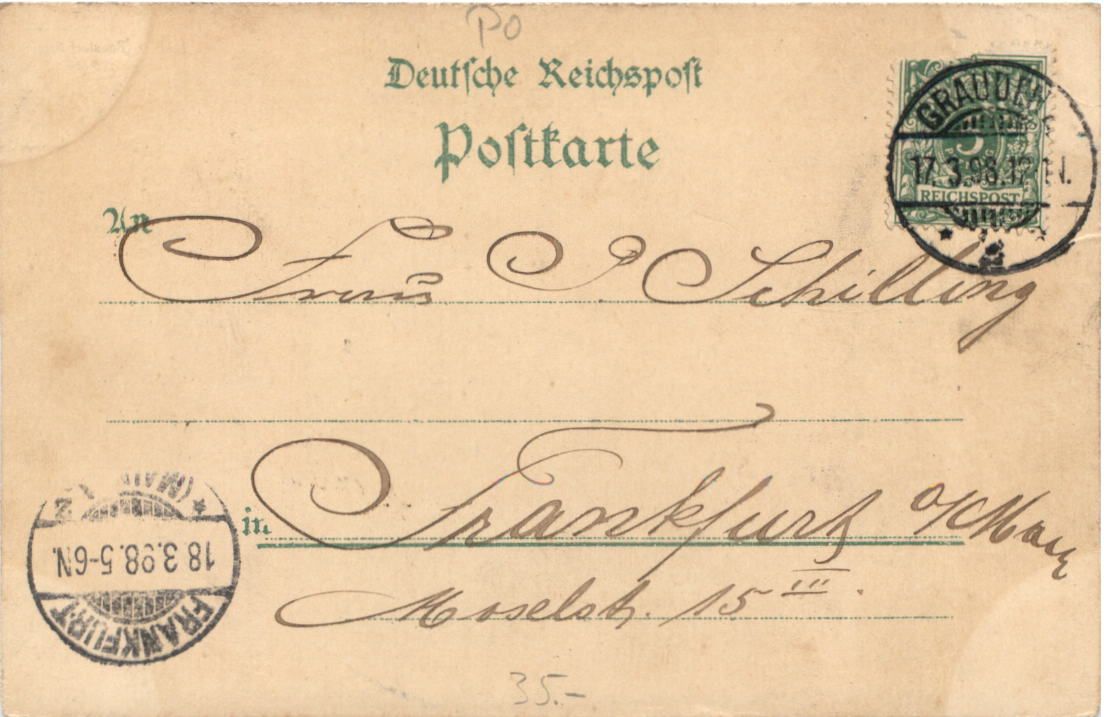 PO
Deutsche Reichspost
Postkarte
GRAUDENZ
17.3.98.12-1N.
5
REICHSPOST
An
Frau P Schilling
in Frankfurt a/Main
Moselstr. 15 III.
FRANKFURT
18.3.98.5-6N.
(MAIN)
35.-